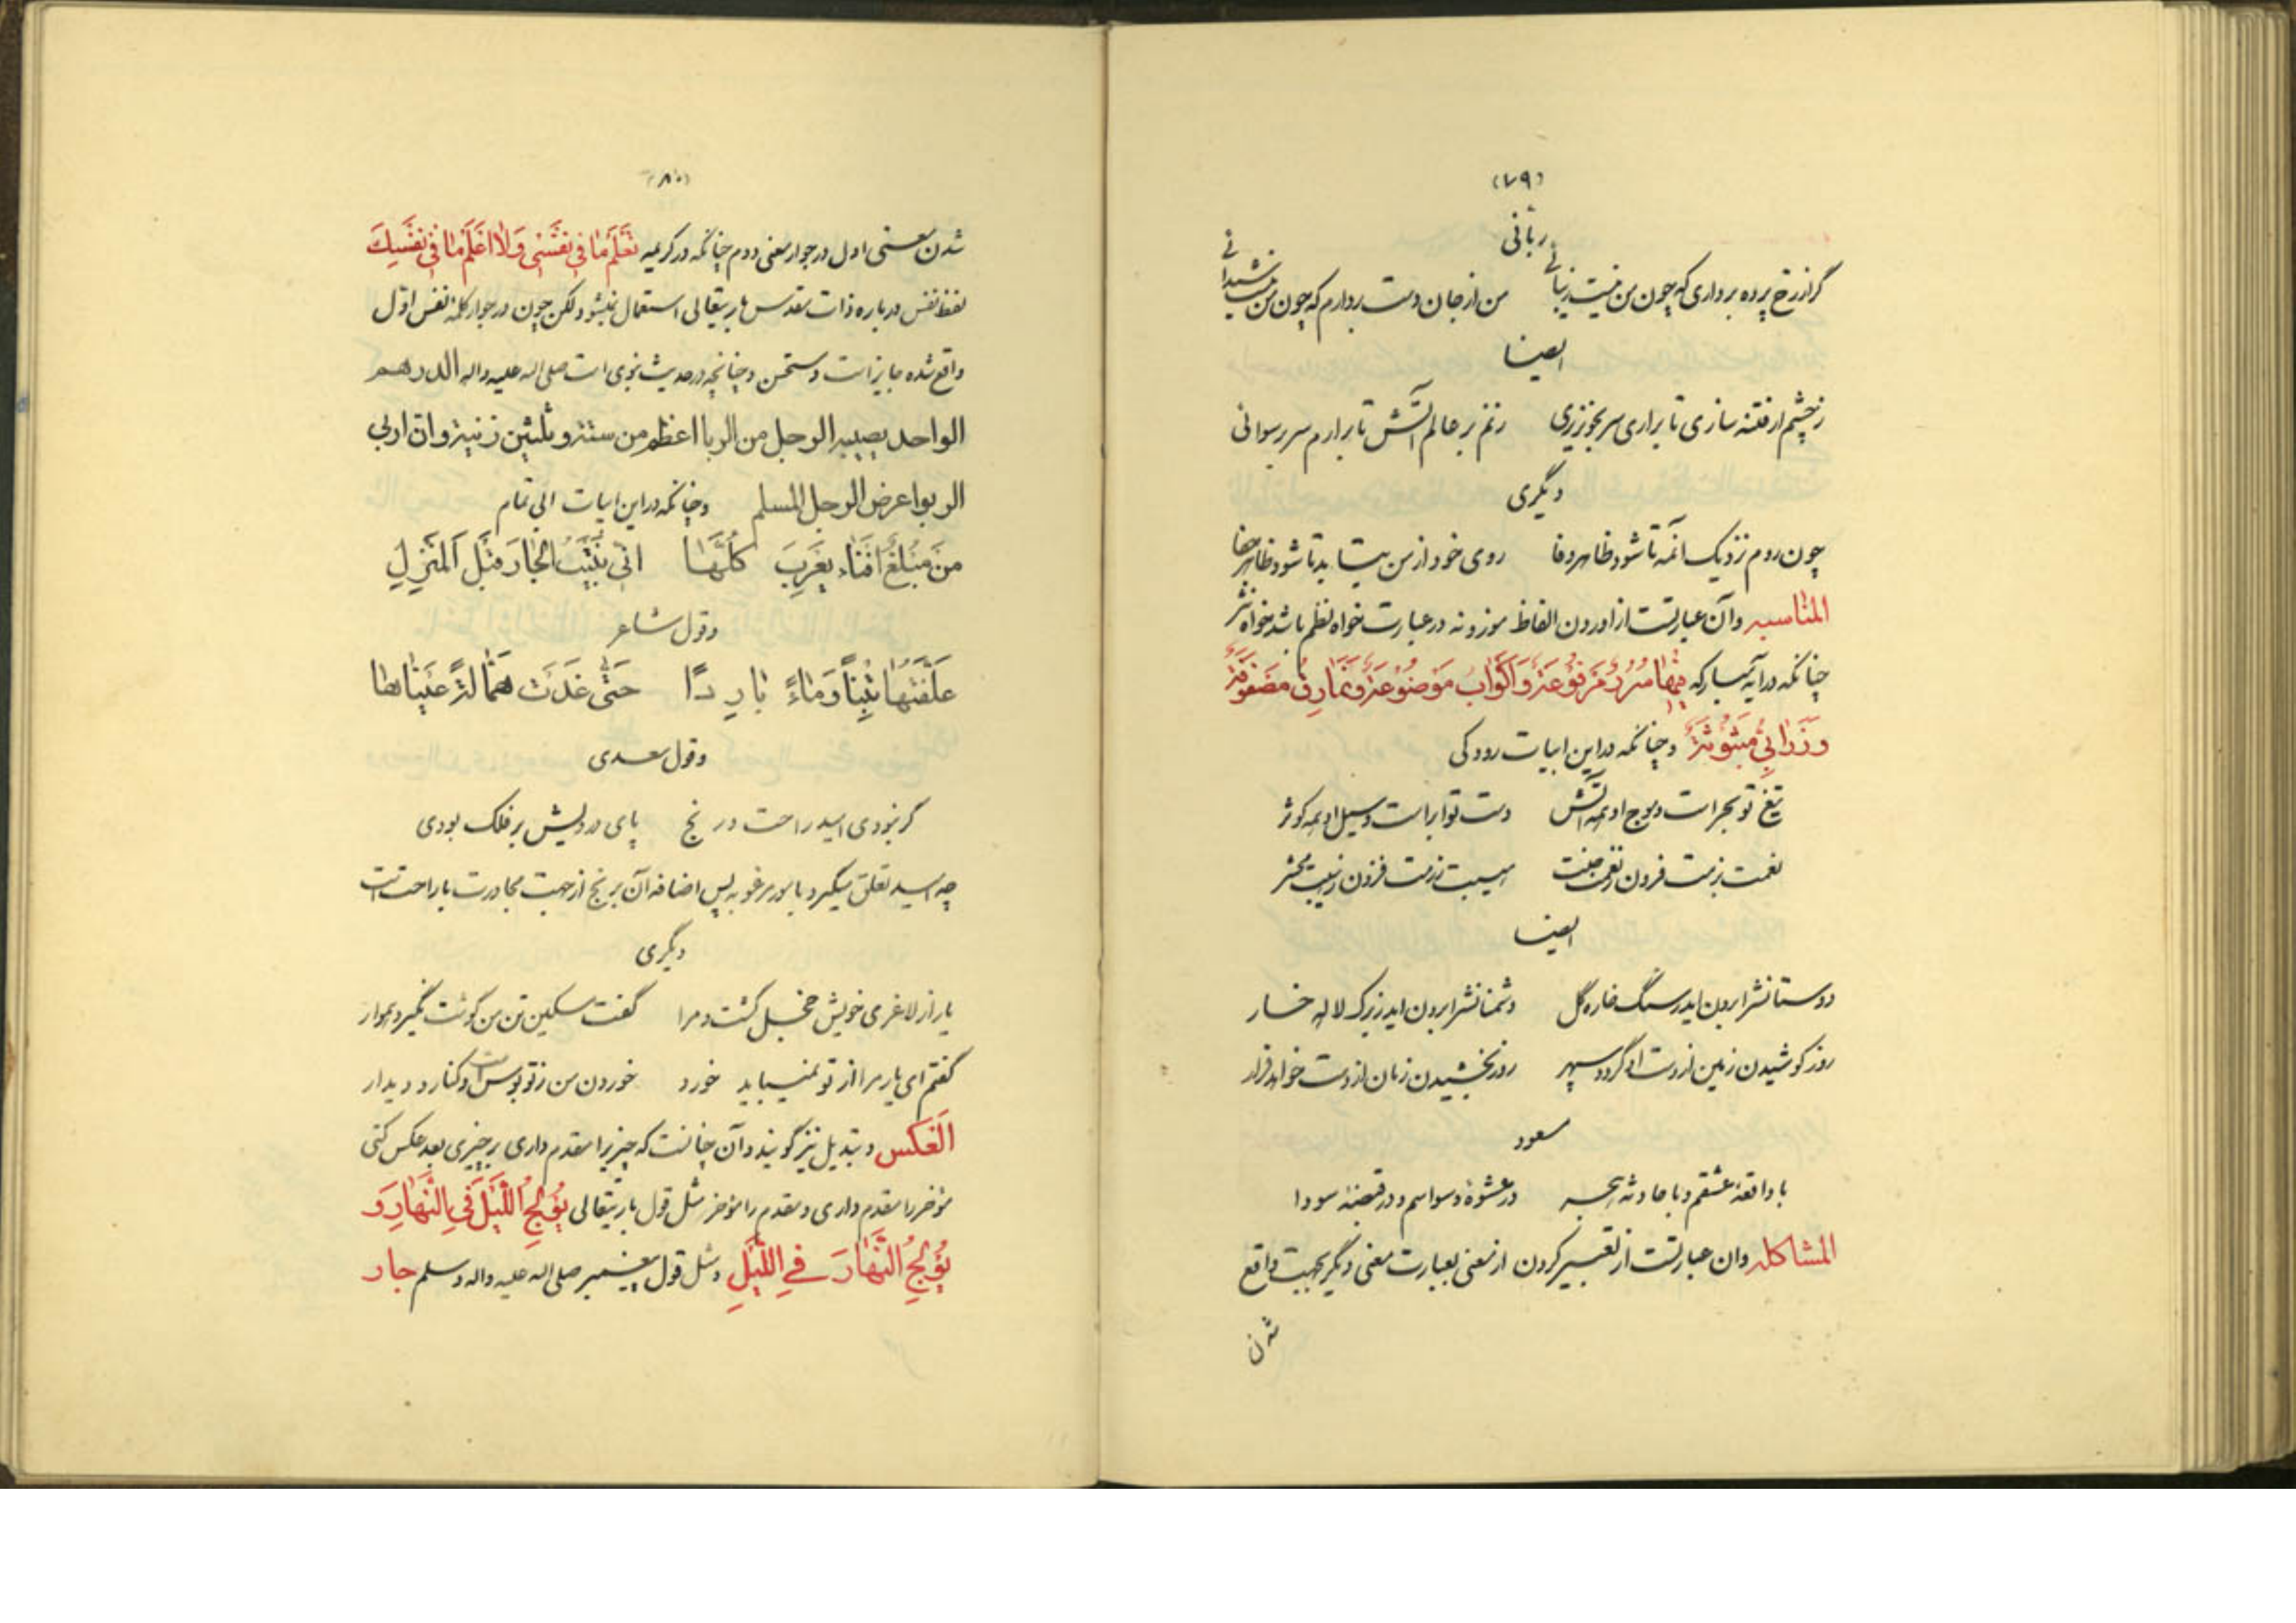 (۷۹)
ربانی
گر از رخ پرده برداری که چون من نیست زیبائی من از جان دست بردارم که چون من نیست شیدائی
ایضا
ز چشم ار فتنه سازی تا براری سر بخونریزی زنم بر عالم آتش تا برارم سر برسوائی
دیگری
چون روم نزدیک آنمه تا شود ظاهر وفا روی خود از من بتابد تا شود ظاهر جفا
المناسبه وآن عبارتست از اوردن الفاظ موزونه در عبارت خواه نظم باشد خواه نثر
چنانکه در آیه مبارکه فیها سرر مرفوعة واکواب موضوعة ونمارق مصفوفة
وزرابی مبثوثة وچنانکه در این ابیات رودکی
تیغ تو بحر است وموج او همه آتش دست تو ابر است وسیل او همه کوثر
نعمت بزمت فزون ز نعمت جنت هیبت رزمت فزون ز هیبت محشر
ایضا
دوستانش را برون اید ز سنگ خاره گل دشمنانش را برون اید ز برک لاله خار
روز کوشیدن زمین از دست او گردد سپهر روز بخشیدن زمان از دست خواهد قرار
مسعود
با واقعهٔ عشقم وبا حادثه هجر در عشوهٔ وسواسم ودر قبضهٔ سودا
المشاکله وان عبارتست از تعبیر کردن از معنی بعبارت معنی دیگر بجهت واقع
شدن
(۸۰)
شدن معنی اول در جوار معنی دوم چنانکه در کریمه تعلم ما فی نفسی ولا اعلم ما فی نفسک
لفظ نفس درباره ذات مقدس باریتعالی استعمال نمیشود لکن چون در جوار کلمه نفس اول
واقع شده جایز است ومستحسن وچنانچه در حدیث نبوی است صلی اله علیه واله الدرهم
الواحد یصیبه الرجل من الربا اعظم من ستة وثلثین زنیة وان اربی
الربوا عرض الرجل المسلم وچنانکه در این ابیات ابی تمام
من مبلغ افناء یعرب کلها انی بنیت الجار قبل المنزل
وقول شاعر
علفتها تبنا وماء باردا حتی غدت همالة عیناها
وقول سعدی
گر نبودی امید راحت ورنج پای درویش بر فلک بودی
چه امید تعلق میگیرد بامور مرغوبه پس اضافه آن برنج از جهت مجاورت با راحت است
دیگری
یار از لاغری خویش خجل گشت ومرا گفت مسکین تن من گوشت نگیرد هموار
گفتم ای یار مرا از تو نمیباید خورد خوردن من ز تو بوس است وکنار ودیدار
العکس وتبدیل نیز گویند وآن چنانست که چیزیرا مقدم داری بر چیزی بعد عکس کنی
مؤخر را مقدم داری ومقدم را مؤخر مثل قول باریتعالی یولج اللیل فی النهار و
یولج النهار فی اللیل ومثل قول پیغمبر صلی اله علیه واله وسلم جار